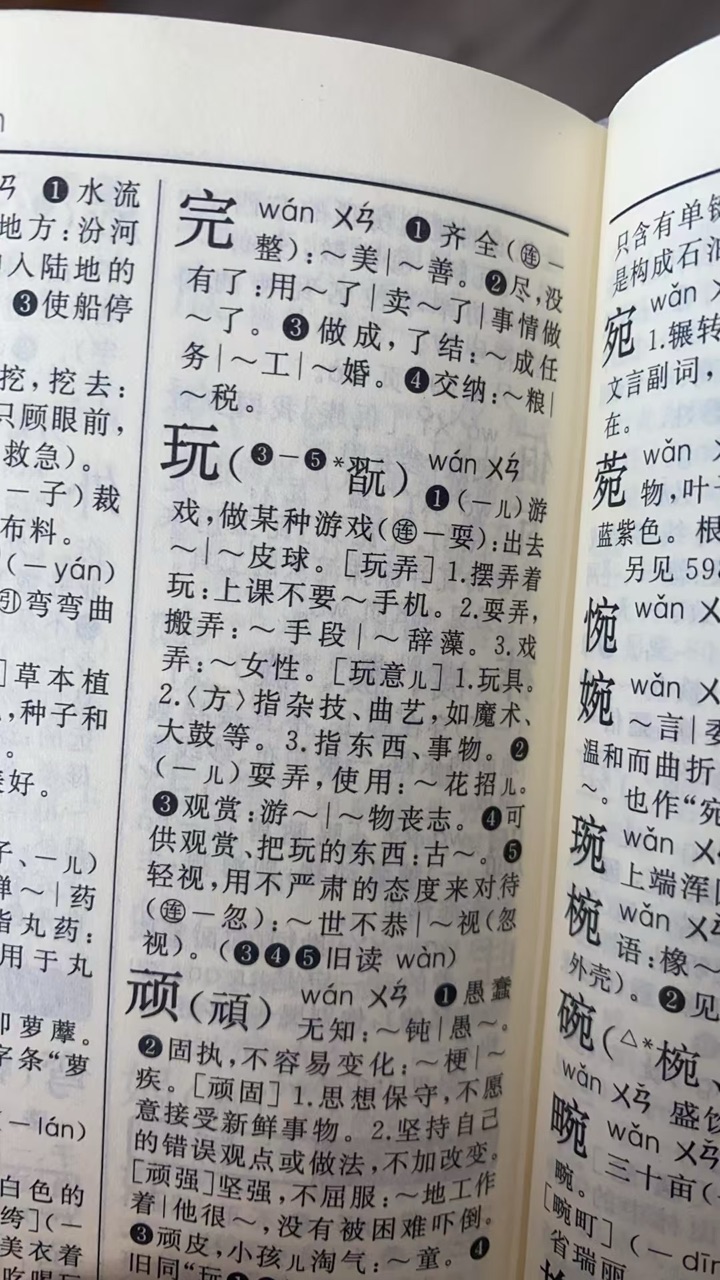 ❶水流
地方：汾河
入陆地的
❸使船停
挖，挖去：
只顾眼前，
救急）。
（一子）裁
布料。
（一yán）
㊀弯弯曲
］草本植
，种子和
。
美好。
子、一儿）
弹～|药
指丸药：
用于丸
即萝藦。
字条“萝
（一lán）
白色的
绔］（一
美衣着
完 wán ㄨㄢˊ ❶齐全（㊣一
整）：～美|～善。❷尽，没
有了：用～了|卖～了|事情做
～了。❸做成，了结：～成任
务|～工|～婚。❹交纳：～粮|
～税。
玩（❸－❺*翫） wán ㄨㄢˊ
❶（一儿）游
戏，做某种游戏（㊣一耍）：出去
～|～皮球。［玩弄］1.摆弄着
玩：上课不要～手机。2.耍弄，
搬弄：～手段|～辞藻。3.戏
弄：～女性。［玩意儿］1.玩具。
2.〈方〉指杂技、曲艺，如魔术、
大鼓等。3.指东西、事物。❷
（一儿）耍弄，使用：～花招儿。
❸观赏：游～|～物丧志。❹可
供观赏、把玩的东西：古～。❺
轻视，用不严肃的态度来对待
（㊣一忽）：～世不恭|～视（忽
视）。（❸❹❺旧读 wàn）
顽（頑） wán ㄨㄢˊ ❶愚蠢
无知：～钝|愚～。
❷固执，不容易变化：～梗|～
疾。［顽固］1.思想保守，不愿
意接受新鲜事物。2.坚持自己
的错误观点或做法，不加改变。
［顽强］坚强，不屈服：～地工作
着|他很～，没有被困难吓倒。
❸顽皮，小孩儿淘气：～童。❹
旧同“玩
只含有单键
是构成石油
宛 wǎn ㄨ
1.辗转
文言副词，
在。
菀 wǎn ㄨ
物，叶子
蓝紫色。根
另见 598
惋 wǎn ㄨ
婉 wǎn ㄨ
～言|委
温和而曲折
～。也作“宛
琬 wǎn ㄨ
上端浑圆
椀 wǎn ㄨ
语：橡～
外壳）。❷见
碗（△*椀、
wǎn ㄨㄢˇ 盛饮
畹 wǎn ㄨㄢˇ
三十亩（
畹。
［畹町］（一dīn
省瑞丽